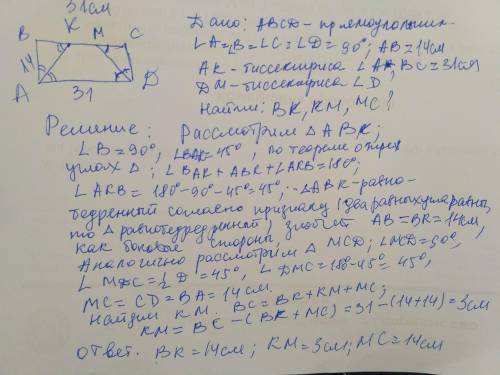 31см
B K M C
14
A 31 D
Дано: ABCD - прямоугольник
∠A=∠B=∠C=∠D=90°; AB=14см
AK - биссектриса ∠A; BC=31см
DM - биссектриса ∠D,
Найти: BK, KM, MC?
Решение: Рассмотрим △ABK;
∠B=90°, ∠BAK=45°, по теореме о трех
углах △; ∠BAK+ABK+∠AKB=180°;
∠AKB=180°-90°-45°=45°, △ABK-равно-
бедренный согласно признаку (два равных угла равны,
то △ равнобедренный), значит AB=BK=14см,
как боковые стороны,
Аналогично рассмотрим △ MCD; ∠MCD=90°,
∠ MDC=½ D =45°, ∠ DMC=180-45°=45°,
MC=CD=BA=14см.
Найдём KM. BC=BK+KM+MC;
KM=BC-(BK+MC)=31-(14+14)=3см
Ответ. BK=14см; KM=3см; MC=14см